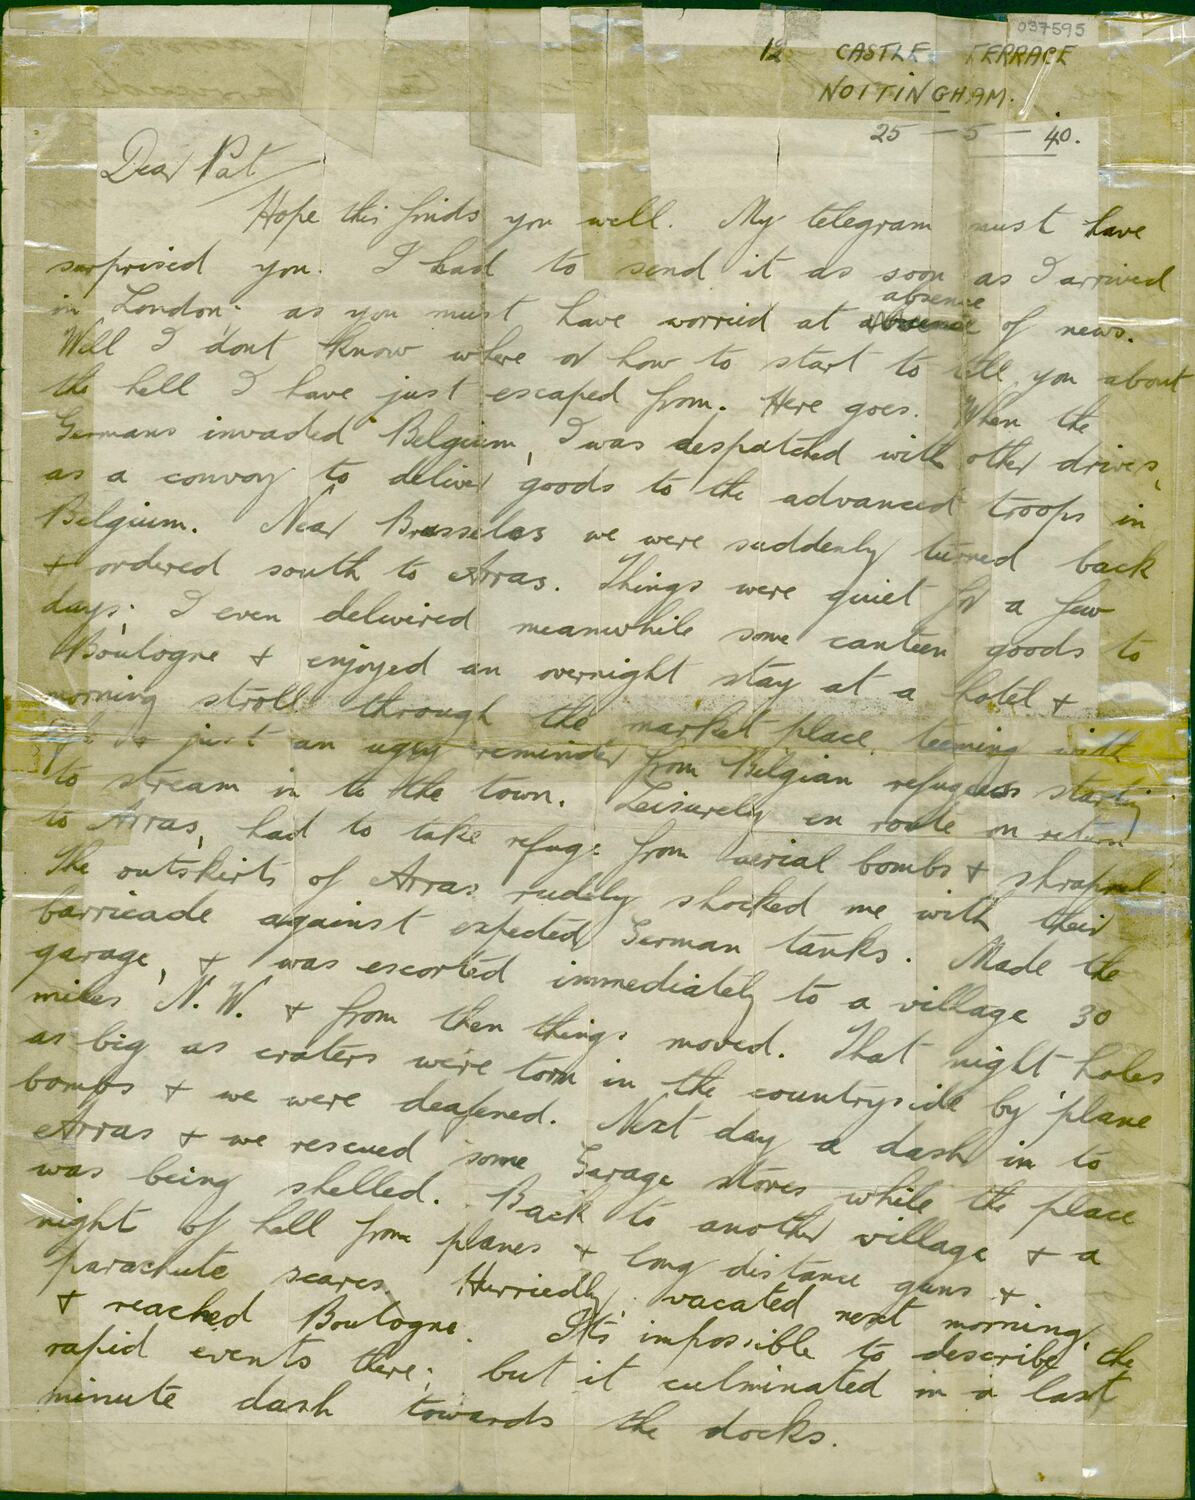 037595
12 CASTLE TERRACE
NOTTINGHAM.
25 - 5 - 40.
Dear Pat
Hope this finds you well. My telegram must have
surprised you. I had to send it as soon as I arrived
in London - as you must have worried at absence of news.
Well I dont know where or how to start to tell you about
the hell I have just escaped from. Here goes. When the
Germans invaded Belgium, I was despatched with other drivers,
as a convoy to deliver goods to the advanced troops in
Belgium. Near Brusselas we were suddenly turned back
+ ordered south to Arras. Things were quiet for a few
days. I even delivered meanwhile some canteen goods to
Boulogne + enjoyed an overnight stay at a hotel +
morning stroll through the market place, teeming with
+ just an ugly reminder from Belgian refugees starting
to stream in to the town. Leisurely en route on return
to Arras, had to take refuge from aerial bombs + shrapnel.
The outskirts of Arras rudely shocked me with their
barricade against expected German tanks. Made the
garage, + was escorted immediately to a village 30
miles N. W. + from then things moved. That night holes
as big as craters were torn in the countryside by 'plane
bombs + we were deafened. Next day a dash in to
Arras + we rescued some Garage stores while the place
was being shelled. Back to another village + a
night of hell from planes + long distance guns +
parachute scares. Hurriedly vacated next morning
+ reached Boulogne. It's impossible to describe the
rapid events there; but it culminated in a last
minute dash towards the docks.